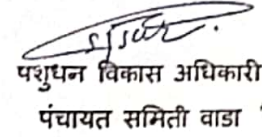 पशुधन विकास अधिकारी
पंचायत समिती वाडा